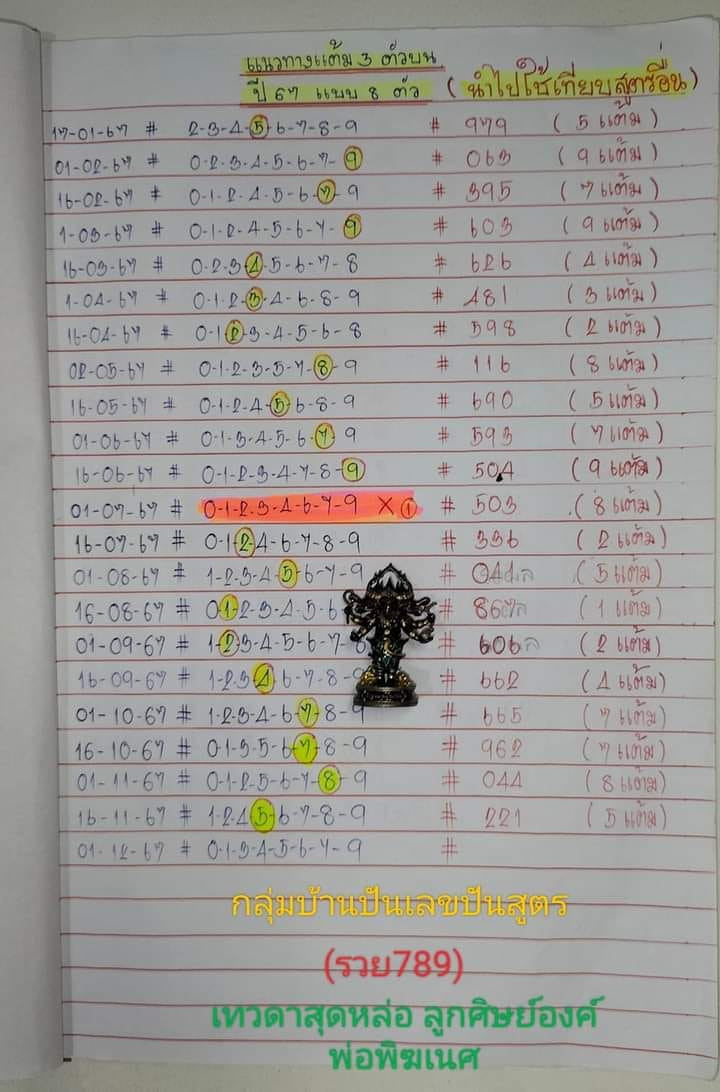 แนวทางแต้ม 3 ตัวบน
ปี 67 แบบ 8 ตัว (นำไปใช้เทียบสูตรอื่น)
17-01-67 # 2-3-4-5-6-7-8-9 # 979 (5 แต้ม)
01-02-67 # 0-2-3-4-5-6-7-9 # 063 (9 แต้ม)
16-02-67 # 0-1-2-4-5-6-7-9 # 395 (7 แต้ม)
1-03-67 # 0-1-2-4-5-6-7-9 # 603 (9 แต้ม)
16-03-67 # 0-2-3-4-5-6-7-8 # 626 (4 แต้ม)
1-04-67 # 0-1-2-3-4-6-8-9 # 481 (3 แต้ม)
16-04-67 # 0-1-2-3-4-5-6-8 # 598 (2 แต้ม)
02-05-67 # 0-1-2-3-5-7-8-9 # 116 (8 แต้ม)
16-05-67 # 0-1-2-4-5-6-8-9 # 690 (5 แต้ม)
01-06-67 # 0-1-3-4-5-6-7-9 # 593 (7 แต้ม)
16-06-67 # 0-1-2-3-4-7-8-9 # 504 (9 แต้ม)
01-07-67 # 0-1-2-3-4-6-7-9 X 1 # 503 (8 แต้ม)
16-07-67 # 0-1-2-4-6-7-8-9 # 336 (2 แต้ม)
01-08-67 # 1-2-3-4-5-6-7-9 # 041 (5 แต้ม)
16-08-67 # 0-1-2-3-4-5-6 # 867 (1 แต้ม)
01-09-67 # 1-2-3-4-5-6-7-8 # 606 (2 แต้ม)
16-09-67 # 1-2-3-4-6-7-8-9 # 662 (4 แต้ม)
01-10-67 # 1-2-3-4-6-7-8-9 # 665 (7 แต้ม)
16-10-67 # 0-1-3-5-6-7-8-9 # 962 (7 แต้ม)
01-11-67 # 0-1-2-5-6-7-8-9 # 044 (8 แต้ม)
16-11-67 # 1-2-4-5-6-7-8-9 # 221 (5 แต้ม)
01-12-67 # 0-1-3-4-5-6-7-9 #
กลุ่มบ้านปันเลขปันสูตร
(รวย789)
เทวดาสุดหล่อ ลูกศิษย์องค์
พ่อพิฆเนศ